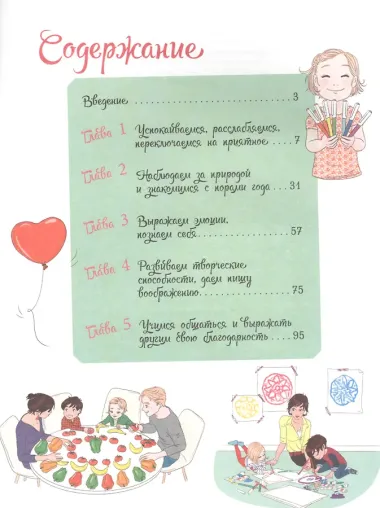 Содержание
Введение 3
Глава 1 Успокаиваемся, расслабляемся,
переключаемся на приятное 7
Глава 2 Наблюдаем за природой
и знакомимся с порами года 31
Глава 3 Выражаем эмоции,
познаем себя 57
Глава 4 Развиваем творческие
способности, даем пищу
воображению 75
Глава 5 Учимся общаться и выражать
другим свою благодарность 95